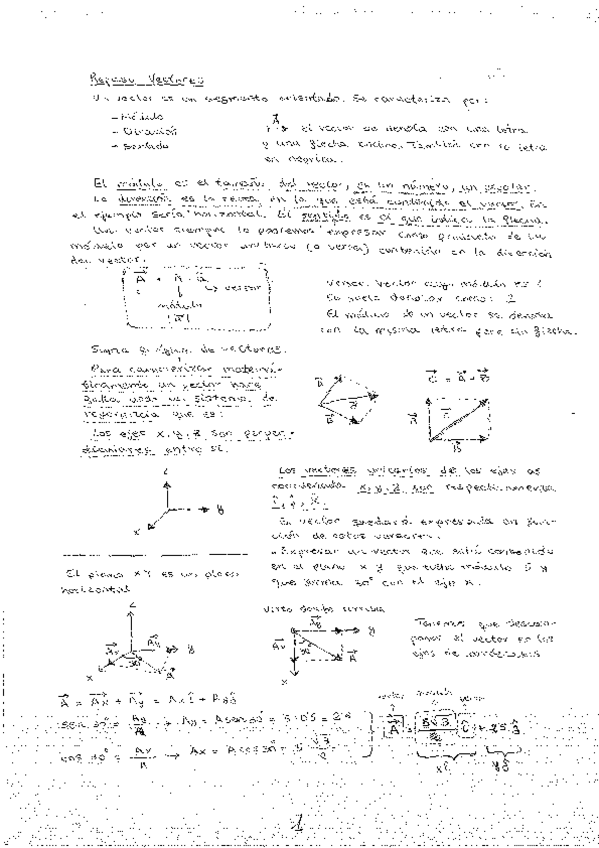 Repaso Vectores
Un vector es un segmento orientado. Se caracteriza por:
- Módulo
- Dirección
- Sentido
A
el vector se denota con una letra
y una flecha encima. También con la letra
en negrita.
El módulo es el tamaño del vector, es un número, un escalar.
La dirección es la recta en la que está contenido el vector. En
el ejemplo sería horizontal. El sentido es el que indica la flecha.
Un vector siempre lo podremos expresar como producto de su
módulo por un vector unitario (o versor) contenido en la dirección
del vector.
A = A · û
versor
módulo
|A|
versor: vector cuyo módulo es 1
Se suele denotar como:
El módulo de un vector se denota
con la misma letra pero sin flecha.
Suma de vectores.
Para caracterizar matemá-
ticamente un vector hace
falta usar un sistema de
referencia que es:
Los ejes x, y, z son perpen-
diculares entre sí.
C = A + B
A
B
z
y
x
Los vectores unitarios de los ejes de
coordenadas x, y, z son respectivamente
El vector quedará expresado en fun-
ción de estos versores.
- Expresar un vector que está contenido
en el plano x y que tiene módulo 5 y
que forma 30° con el eje x.
El plano XY es un plano
horizontal
visto desde arriba
Tenemos que descom-
poner el vector en los
ejes de coordenadas
z
Ax
Ay
A
y
x
A = Ax + Ay = Ax î + Ay ĵ
sen 30° = Ay/A → Ay = A sen 30° = 5·0'5 = 2'5
cos 30° = Ax/A → Ax = A cos 30° = 5 √3/2
A = 5√3/2 î + 2'5 ĵ
1